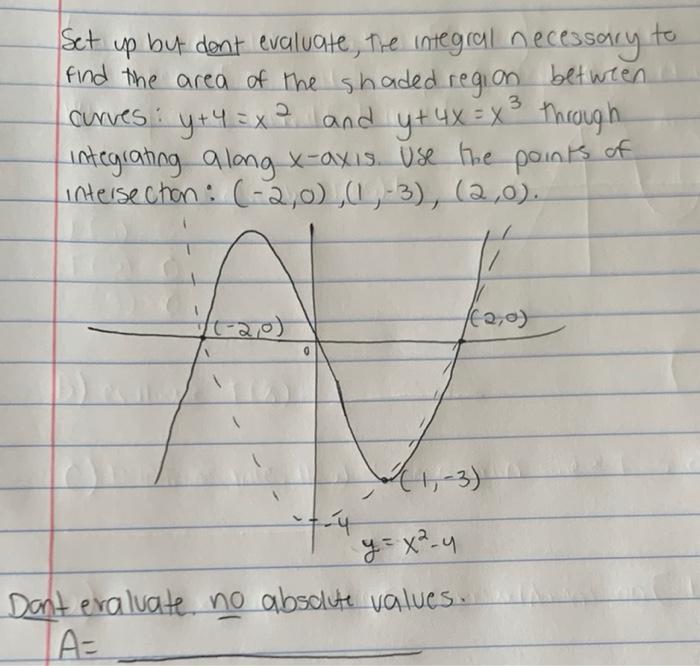 Set up but dont evaluate, the integral necessary to
find the area of the shaded region between
curves: y+4=x² and y+4x=x³ through
integrating along x-axis. Use the points of
intersection: (-2,0), (1,-3), (2,0).
(-2,0)
(2,0)
0
(1,-3)
-4
y=x²-4
Dont evaluate no absolute values.
A=